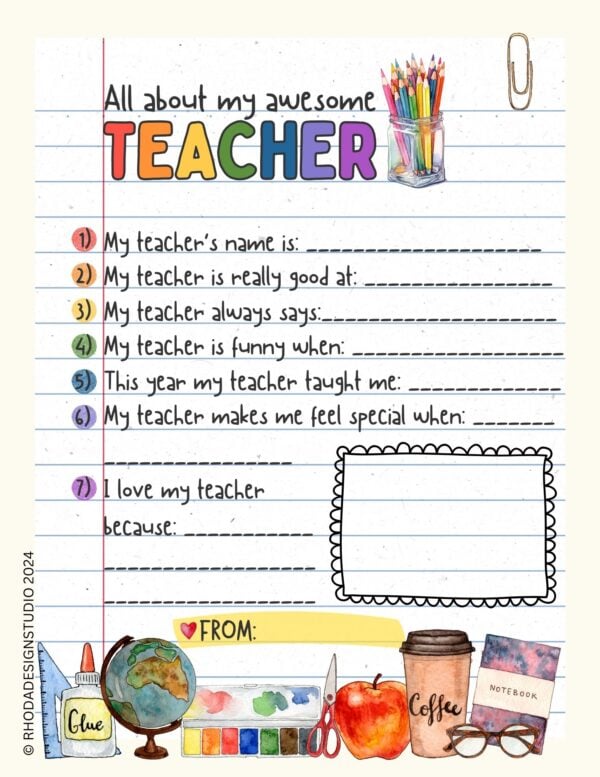 All about my awesome
TEACHER
1) My teacher's name is: ____________________
2) My teacher is really good at: ________________
3) My teacher always says:____________________
4) My teacher is funny when: __________________
5) This year my teacher taught me: _____________
6) My teacher makes me feel special when: _______
________________
7) I love my teacher
because: ___________
__________________
__________________
FROM:
Glue
Coffee
NOTEBOOK
© RHODADESIGNSTUDIO 2024